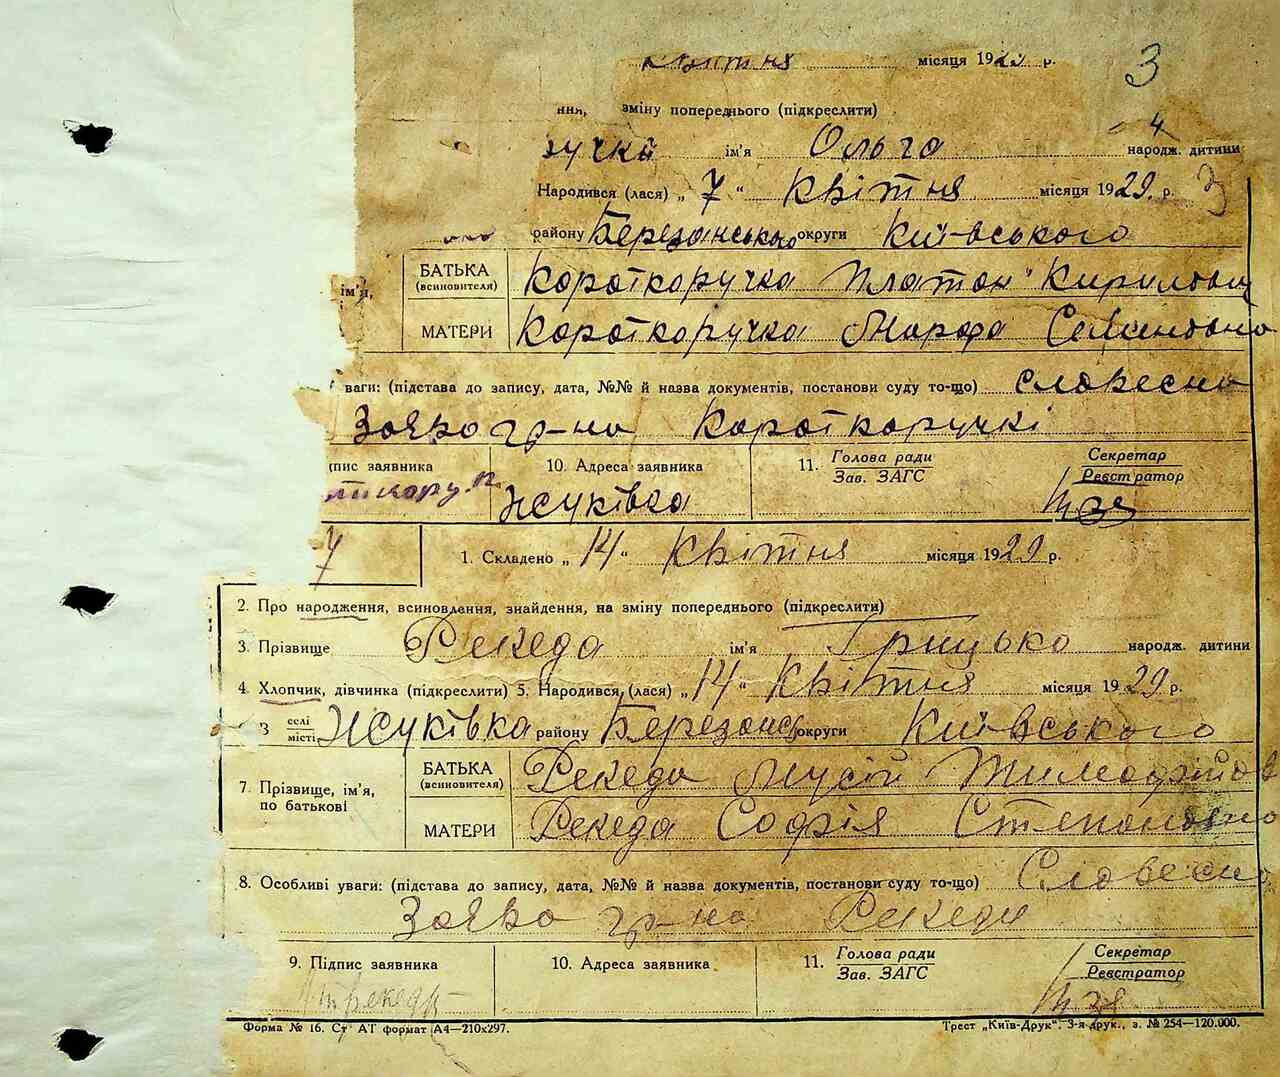 Квітня місяця 1929 р. 3
ння, зміну попереднього (підкреслити)
4
ручка ім'я Ольга народж. дитини
Народився (лася) „ 7 " Квітня місяця 1929. р. 3
району Березанського округи Київського
ім'я, БАТЬКА (всиновителя) Короткоручка Платон Кирилович
МАТЕРИ Короткоручка Марфа Семеновна
ваги: (підстава до запису, дата, №№ й назва документів, постанови суду то-що) словесна
Заява гр-на Короткоручкі
пис заявника 10. Адреса заявника 11. Голова ради Зав. ЗАГС Секретар Реєстратор
Жуківка
7 1. Складено „ 14 " Квітня місяця 1929 р.
2. Про народження, всиновлення, знайдення, на зміну попереднього (підкреслити)
3. Прізвище Рекеда ім'я Грицько народж. дитини
4. Хлопчик, дівчинка (підкреслити) 5. Народився (лася) „ 14 " Квітня місяця 1929 р.
З селі місті Жуківка району Березансь округи Київського
7. Прізвище, ім'я, по батькові БАТЬКА (всиновителя) Рекеда Мусій Тимофійов
МАТЕРИ Рекеда Софія Степановна
8. Особливі уваги: (підстава до запису, дата, №№ й назва документів, постанови суду то-що) Словесна
Заява гр-на Рекеди
9. Підпис заявника 10. Адреса заявника 11. Голова ради Зав. ЗАГС Секретар Реєстратор
Форма № 16. Ст АТ формат А4—210x297. Трест „Київ-Друк". 3-я друк., з. № 254—120.000.